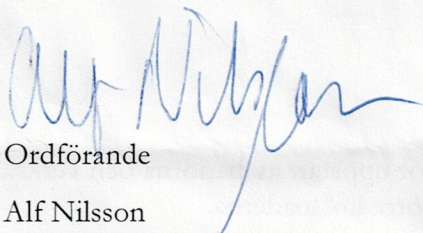 Alf Nilsson
Ordförande
Alf Nilsson